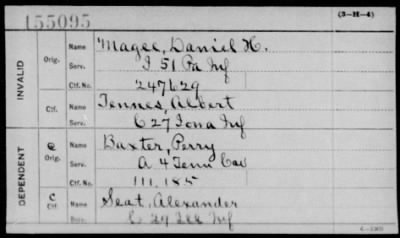 155095
(3-H-4)
INVALID
Orig.
Name
Magee, Daniel H.
Serv.
I 51 Pa Inf
Ctf. No.
247629
Ctf.
Name
Tennes, Albert
Serv.
C 27 Iowa Inf
DEPENDENT
C
Orig.
Name
Baxter, Perry
Serv.
A 4 Tenn Cav
Ctf. No.
111.185
C
Ctf
Name
Seat, Alexander
Serv.
24 Ill Inf